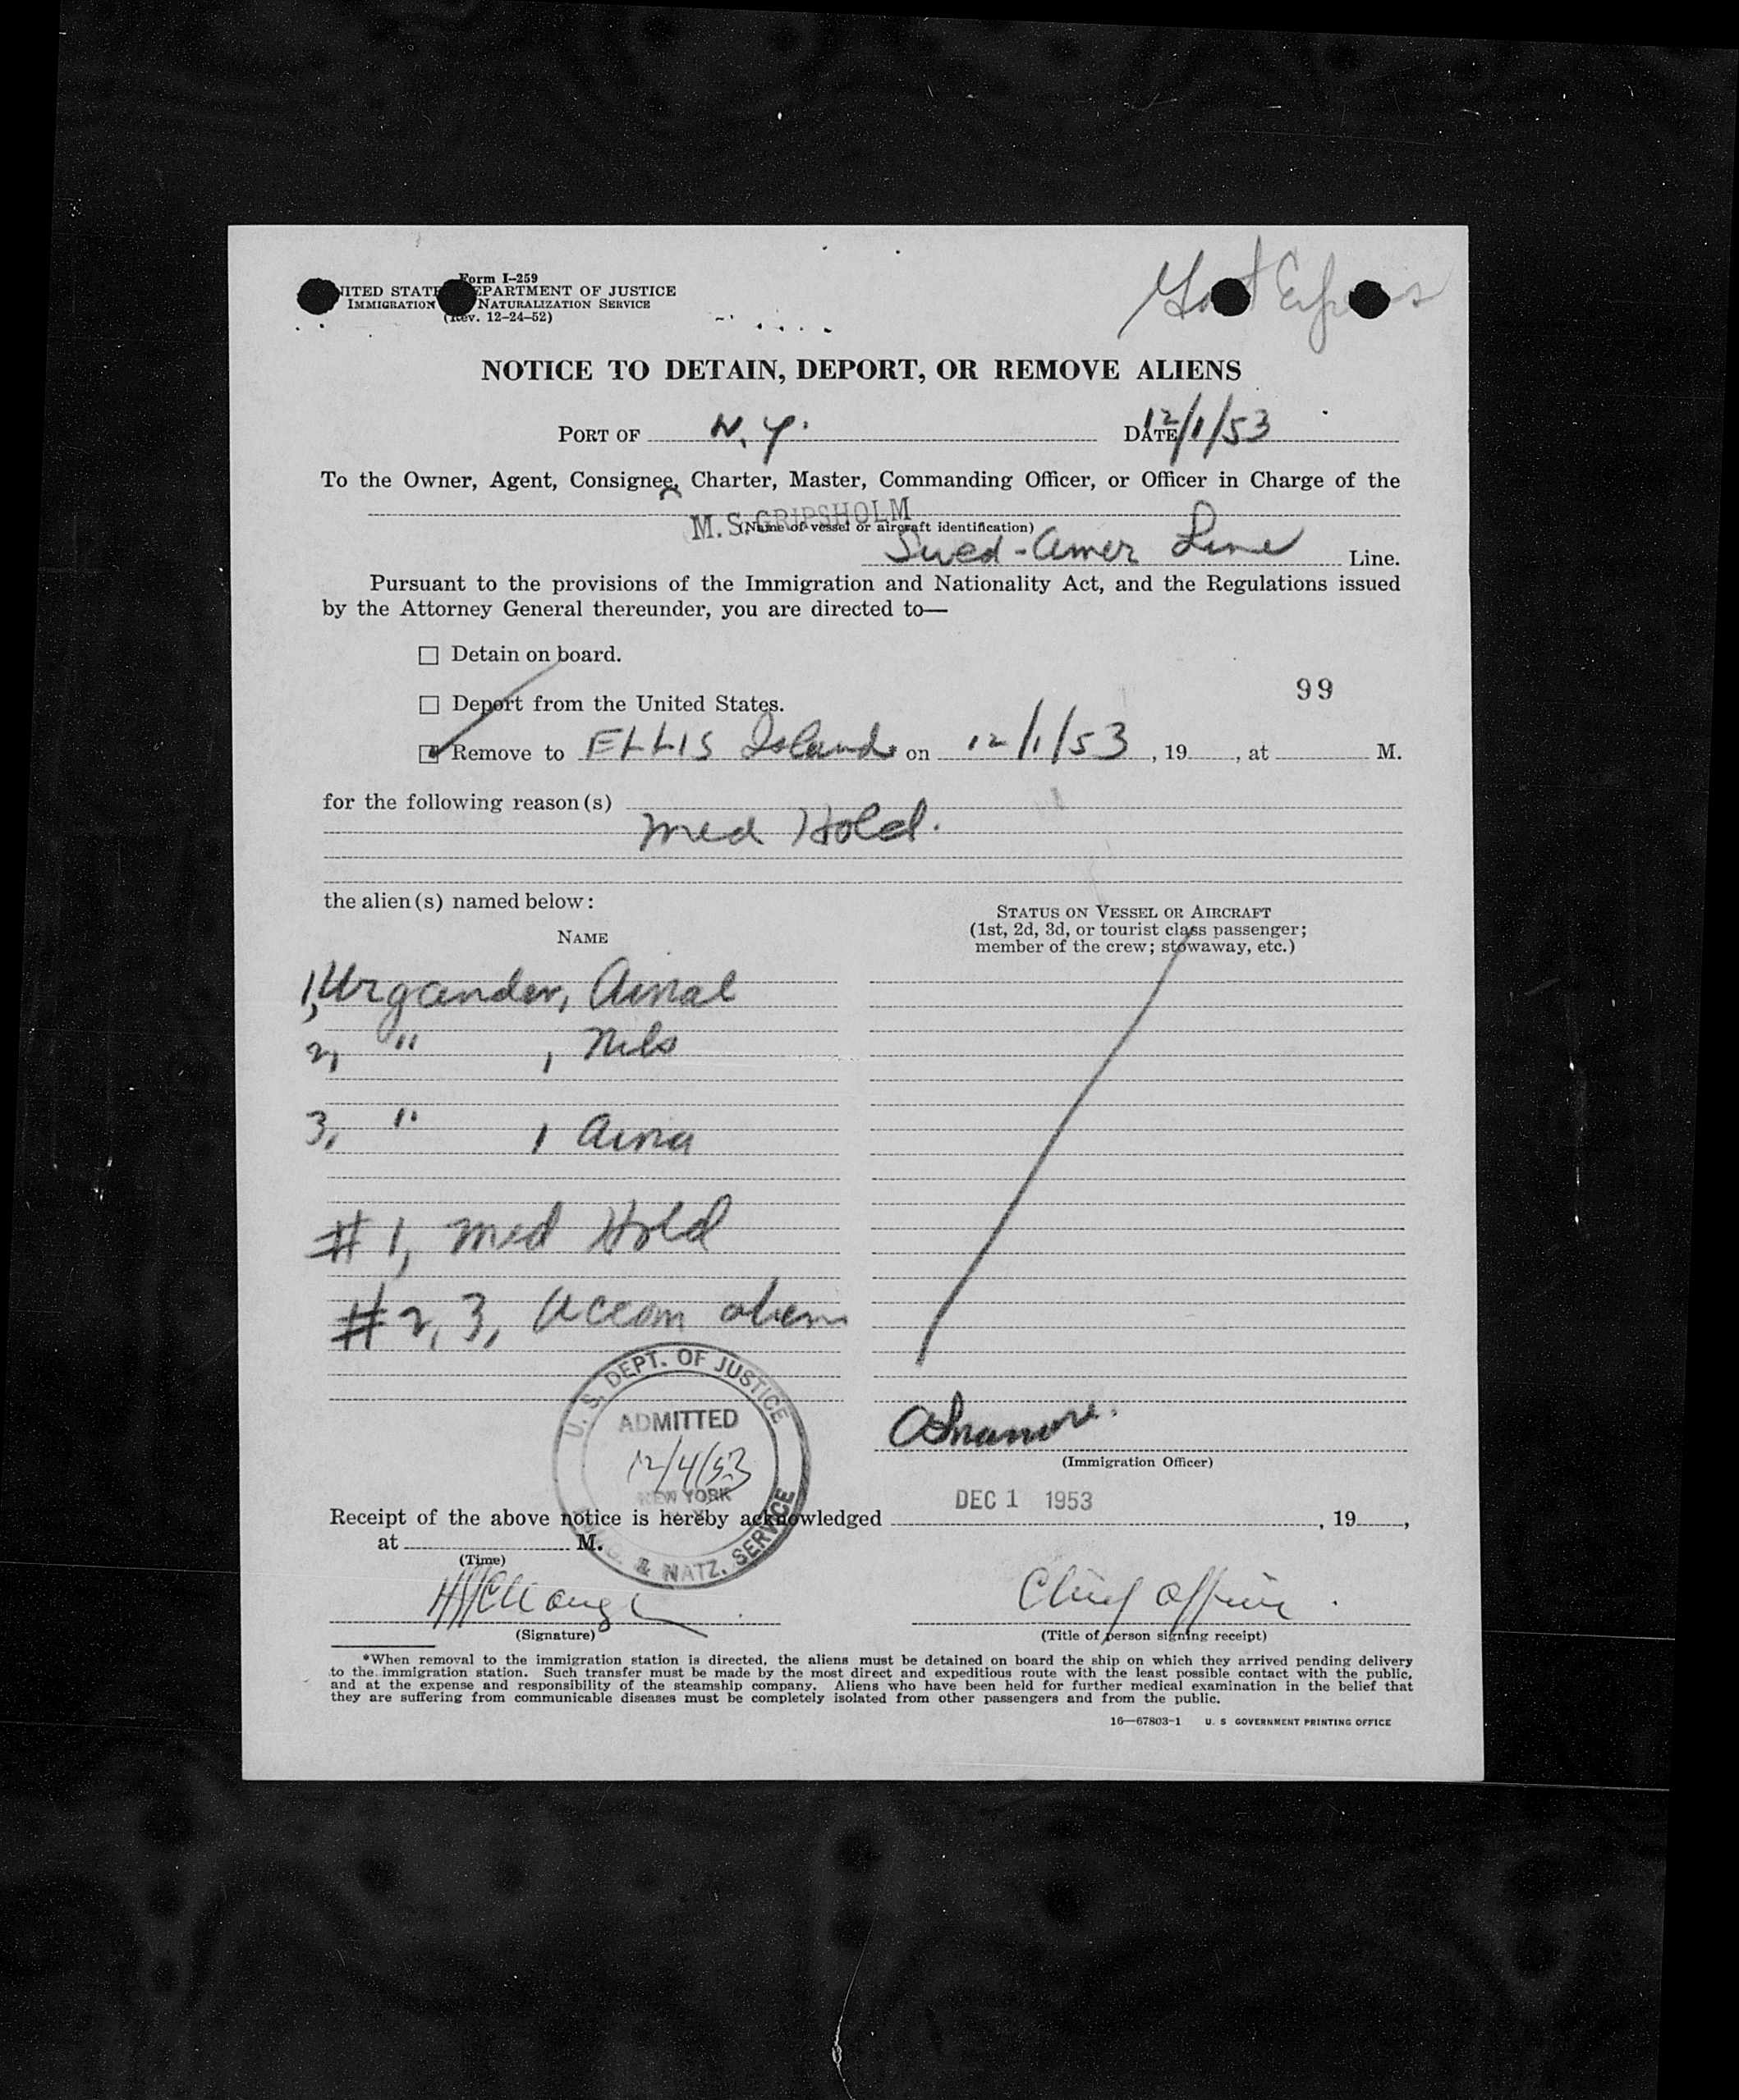 Form I-259
UNITED STATES DEPARTMENT OF JUSTICE
IMMIGRATION NATURALIZATION SERVICE
(Rev. 12-24-52)
NOTICE TO DETAIN, DEPORT, OR REMOVE ALIENS
PORT OF N.Y. DATE 12/1/53
To the Owner, Agent, Consignee, Charter, Master, Commanding Officer, or Officer in Charge of the
M.S. GRIPSHOLM
(Name of vessel or aircraft identification)
Swed-Amer Line Line.
Pursuant to the provisions of the Immigration and Nationality Act, and the Regulations issued
by the Attorney General thereunder, you are directed to—
☐ Detain on board.
99
☐ Deport from the United States.
☑ Remove to ELLIS Island on 12/1/53, 19, at M.
for the following reason(s)
Med Hold.
the alien(s) named below:
STATUS ON VESSEL OR AIRCRAFT
(1st, 2d, 3d, or tourist class passenger;
member of the crew; stowaway, etc.)
NAME
1, Urgander, Ainal
2, " , Nils
3, " , Aina
#1, Med Hold
#2, 3, Accom alien
U. S. DEPT. OF JUSTICE
ADMITTED
12/4/53
NEW YORK
& NATZ. SERVICE
(Immigration Officer)
DEC 1 1953
Receipt of the above notice is hereby acknowledged , 19 ,
at M.
(Time)
Chief Officer.
(Signature) (Title of person signing receipt)
*When removal to the immigration station is directed, the aliens must be detained on board the ship on which they arrived pending delivery
to the immigration station. Such transfer must be made by the most direct and expeditious route with the least possible contact with the public,
and at the expense and responsibility of the steamship company. Aliens who have been held for further medical examination in the belief that
they are suffering from communicable diseases must be completely isolated from other passengers and from the public.
16—67803-1 U. S GOVERNMENT PRINTING OFFICE